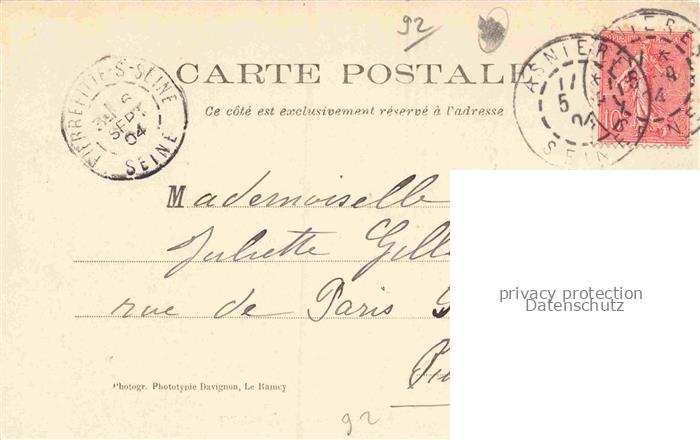 92
CARTE POSTALE
Ce côté est exclusivement réservé à l'adresse
PIERREFITTE-S-SEINE
6
SEPT
04
SEINE
ASNIERES
5
SEINE
10
Mademoiselle
Juliette Gill
rue de Paris
privacy protection
Datenschutz
Photogr. Phototypie Davignon, Le Raincy
92